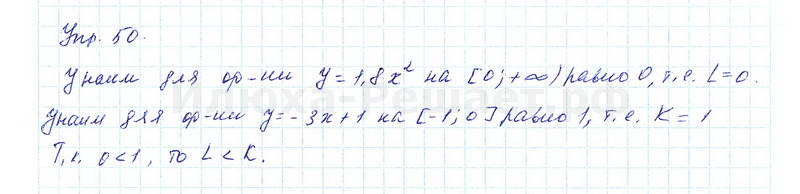 Упр. 50.
Унаим для ф-ии y=1,8x² на [0;+∞) равно 0, т.е. L=0.
Унаим для ф-ии y=-3x+1 на [-1;0] равно 1, т.е. K=1
Т.к. 0<1, то L<K.
Илюха-Решает.рф